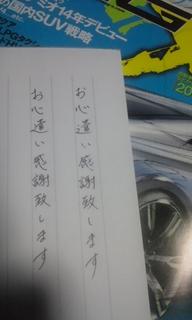 オ14年デビュー
の国内SUV戦略
お心遣い感謝致します
お心遣い感謝致します
20